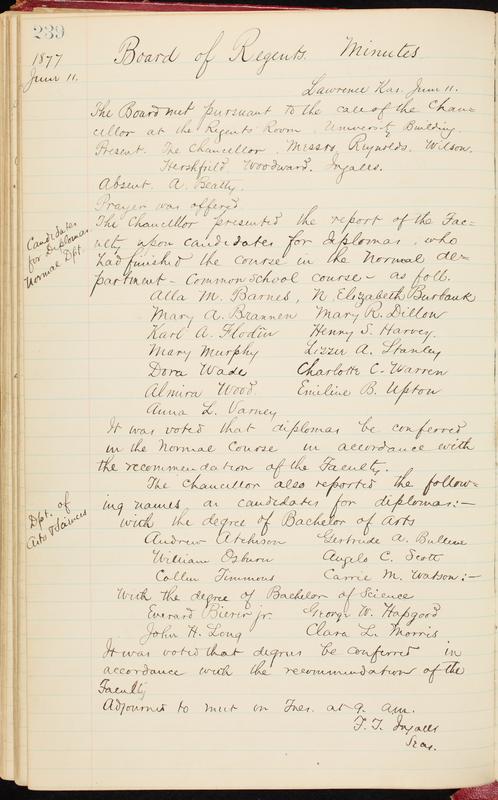 239
1877
June 11.
Board of Regents. Minutes
Lawrence Kas. June 11.
The Board met pursuant to the call of the Chan=
cellor at the Regents Room, University Building.
Present. The Chancellor, Messrs, Reynolds, Wilson,
Hershfield Woodward, Ingalls.
Absent. A. Beatty.
Prayer was offered
Candidates
for Diplomas
Normal Dpt.
The Chancellor presented the report of the Fac=
ulty upon candidates for diplomas, who
had finished the course in the Normal de=
partment - Common School course - as foll.
Alla M. Barnes, N. Elizabeth Burbank
Mary A. Brannen Mary R. Dillon
Karl A. Flodin Henry S. Harvey.
Mary Murphy Lizzie A. Stanley
Dora Wade Charlotte C. Warren
Almira Wood Emiline B. Upton
Anna L. Varney
It was voted that diplomas be conferred
in the Normal Course in accordance with
the recommendation of the Faculty.
The Chancellor also reported the follow=
ing names as candidates for diplomas:-
Dpt. of
Arts & Sciences
with the degree of Bachelor of Arts
Andrew Atchison Gertrude A. Bullene
William Osburn Angelo C. Scott
Collin Timmons Carrie M. Watson:-
With the degree of Bachelor of Science
Everard Bierer jr. George W. Hapgood
John H. Long Clara L. Morris
It was voted that degrees be conferred in
accordance with the recommendation of the
Faculty
Adjourned to meet on Tues. at 9. am.
F. T. Ingalls
Secy.